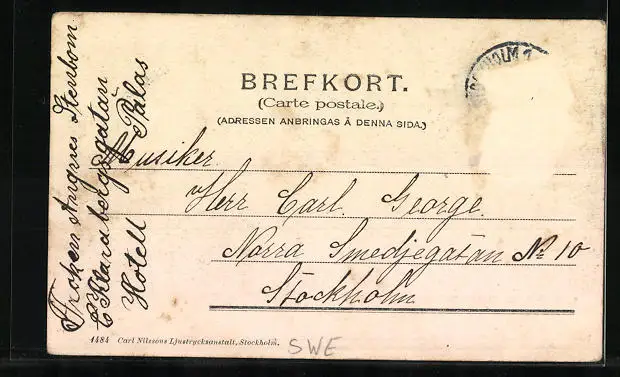 BREFKORT.
(Carte postale.)
(ADRESSEN ANBRINGAS Å DENNA SIDA.)
Musiker
Herr Carl George
Norra Smedjegatan № 10
Stockholm
Fröken Stenbom
Klarabergsgatan
Hotell Palas
1484 Carl Nilssons Ljustrycksanstalt, Stockholm.
SWE